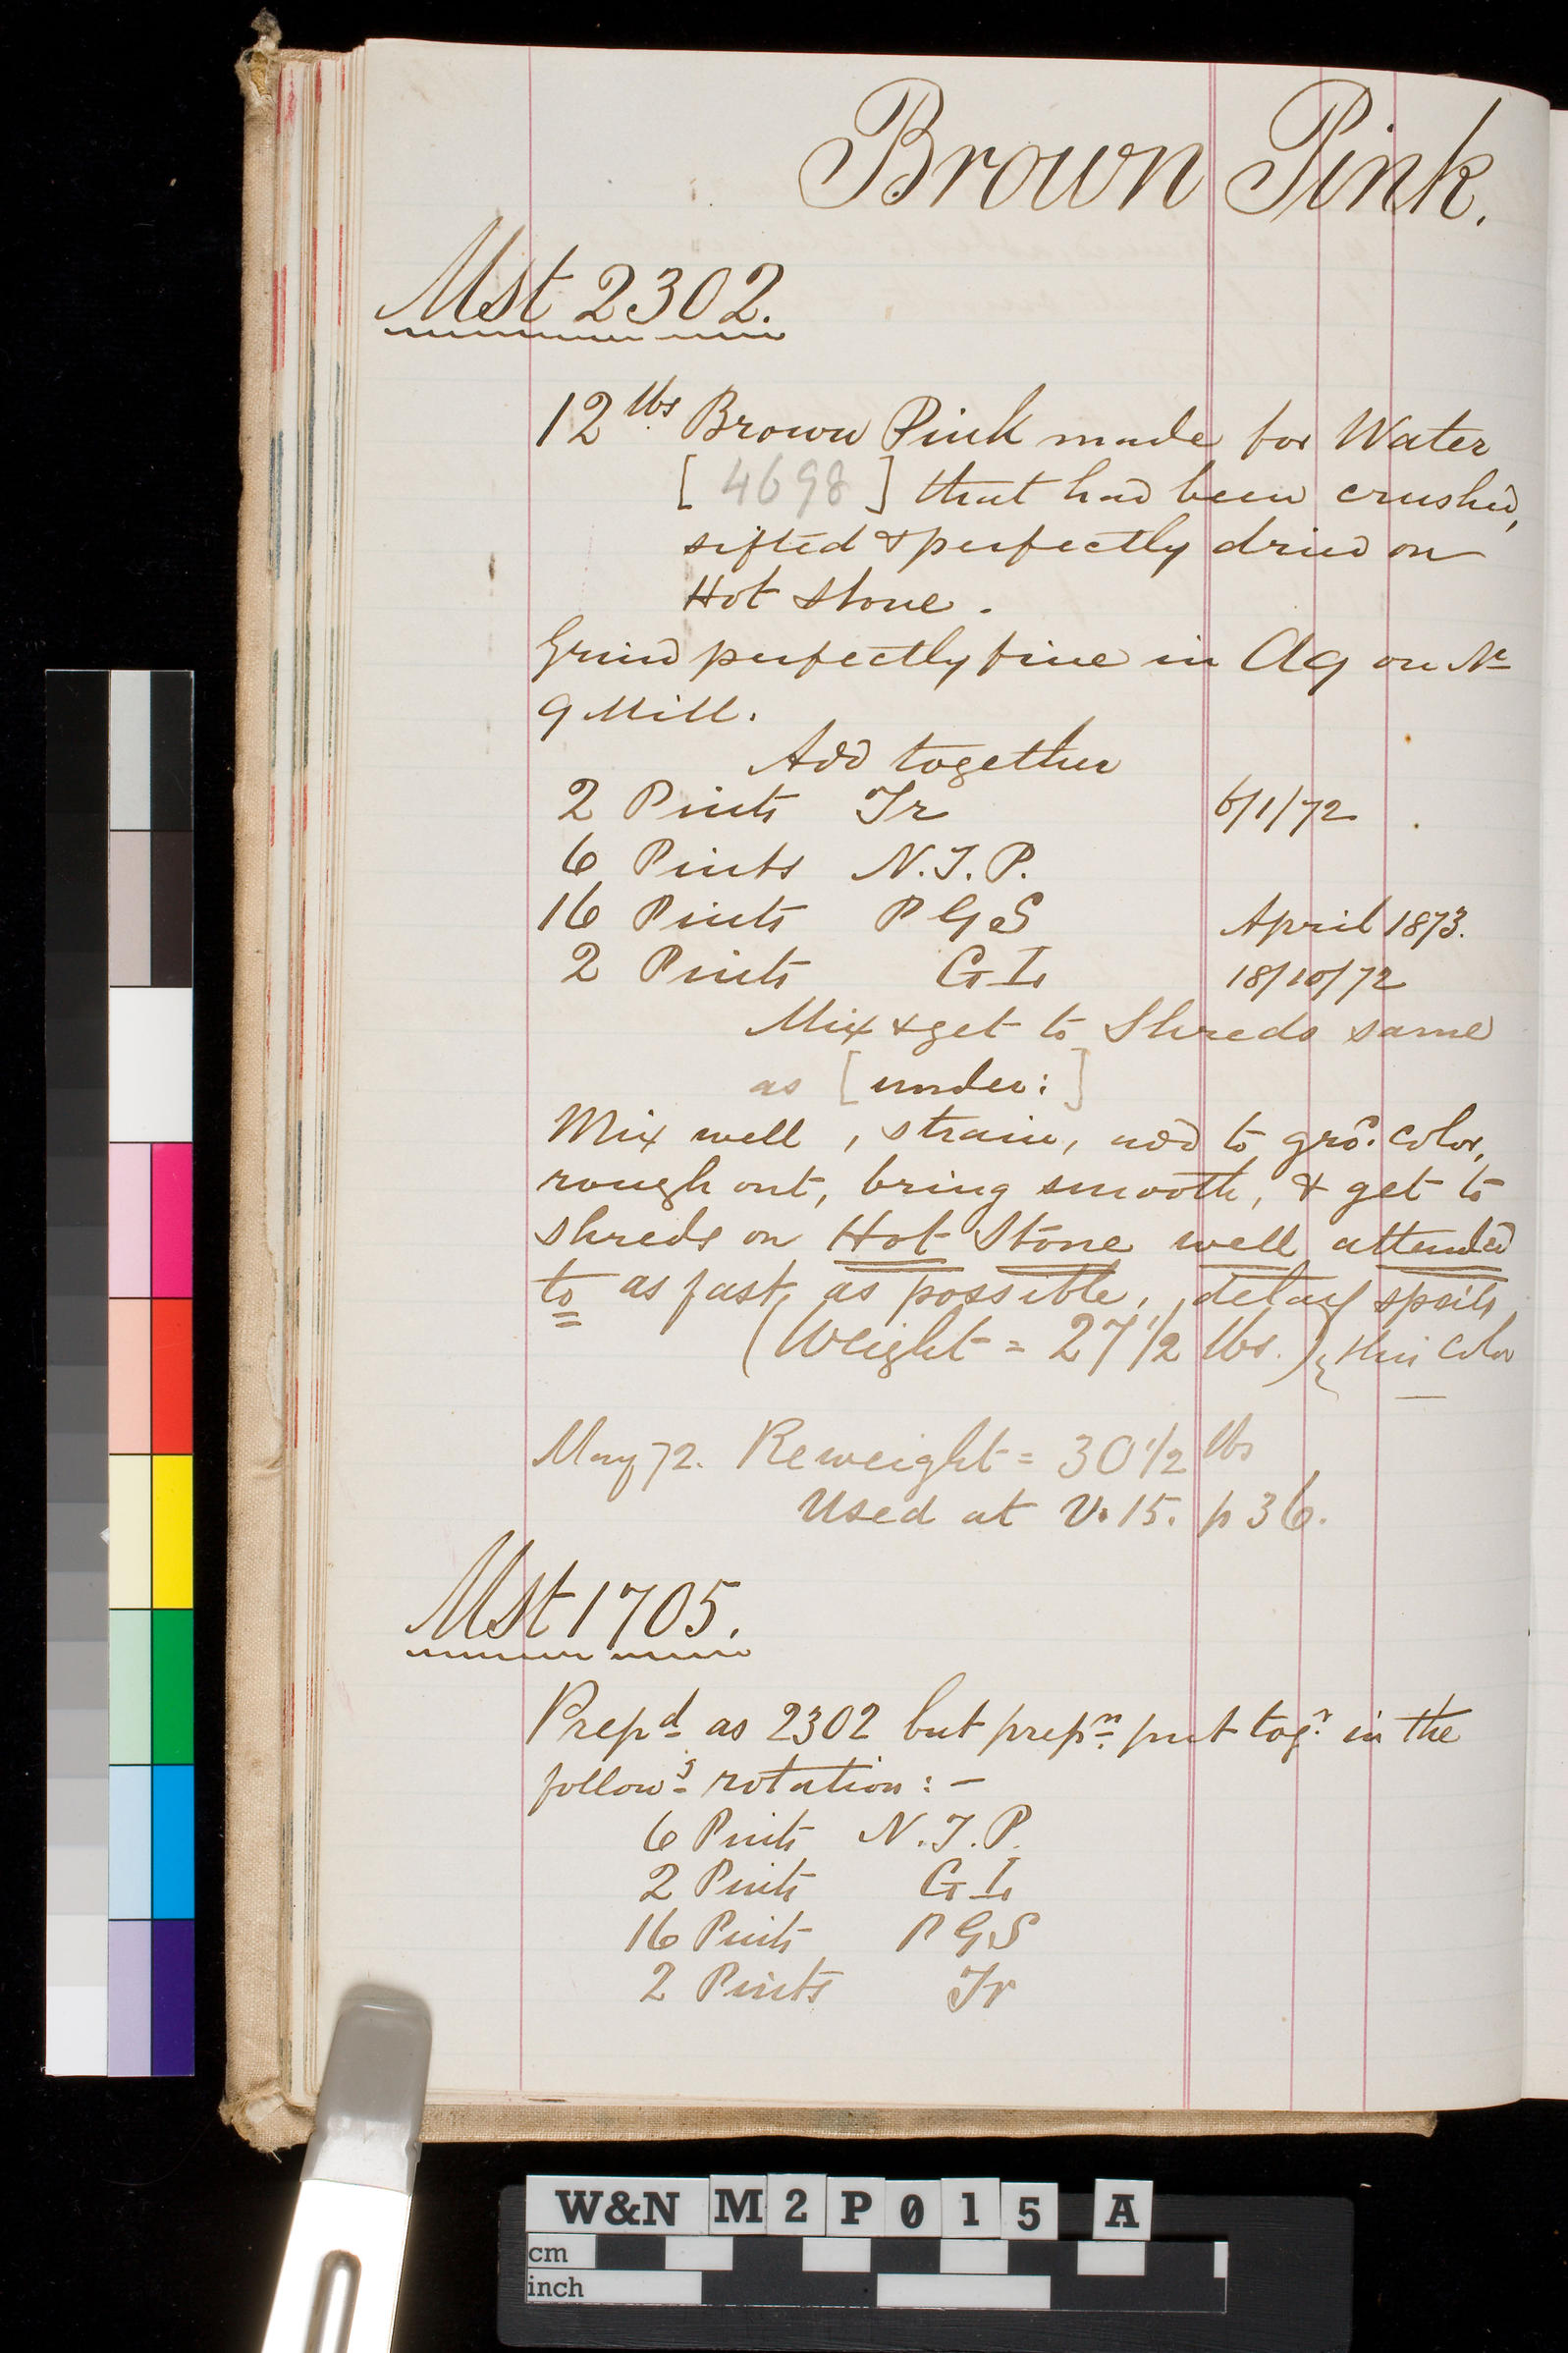 Brown Pink.
Mst 2302.
12 lbs Brown Pink made for Water
[ 4698 ] that had been crushed,
sifted & perfectly dried on
Hot Stone.
Grind perfectly fine in Aq on No
9 Mill.
Add together
2 Pints Tr 6/1/72
6 Pints N.T.P.
16 Pints P G S April 1873.
2 Pints G I 18/10/72
Mix & get to Shreds same
as [under:]
Mix well, strain, add to grd. color,
rough out, bring smooth, & get to
shreds on Hot Stone well attended
to as fast as possible, delay spoils
(Weight = 27 1/2 lbs.) this color
May 72. Reweight = 30 1/2 lbs
Used at V. 15. p 36.
Mst 1705.
Prepd as 2302 but prepn. put togr. in the
followg rotation: -
6 Pints N.T.P.
2 Pints G I
16 Pints P G S
2 Pints Tr
W&N M 2 P 0 1 5 A
cm
inch